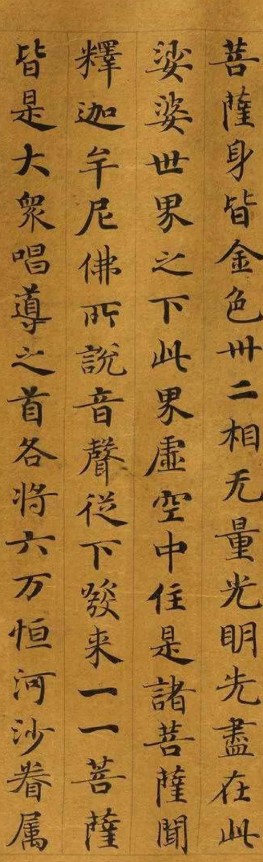 菩薩身皆金色卅二相无量光明先盡在此
娑婆世界之下此界虛空中住是諸菩薩聞
釋迦牟尼佛所說音聲從下發来一一菩薩
皆是大衆唱導之首各將六万恒河沙眷属